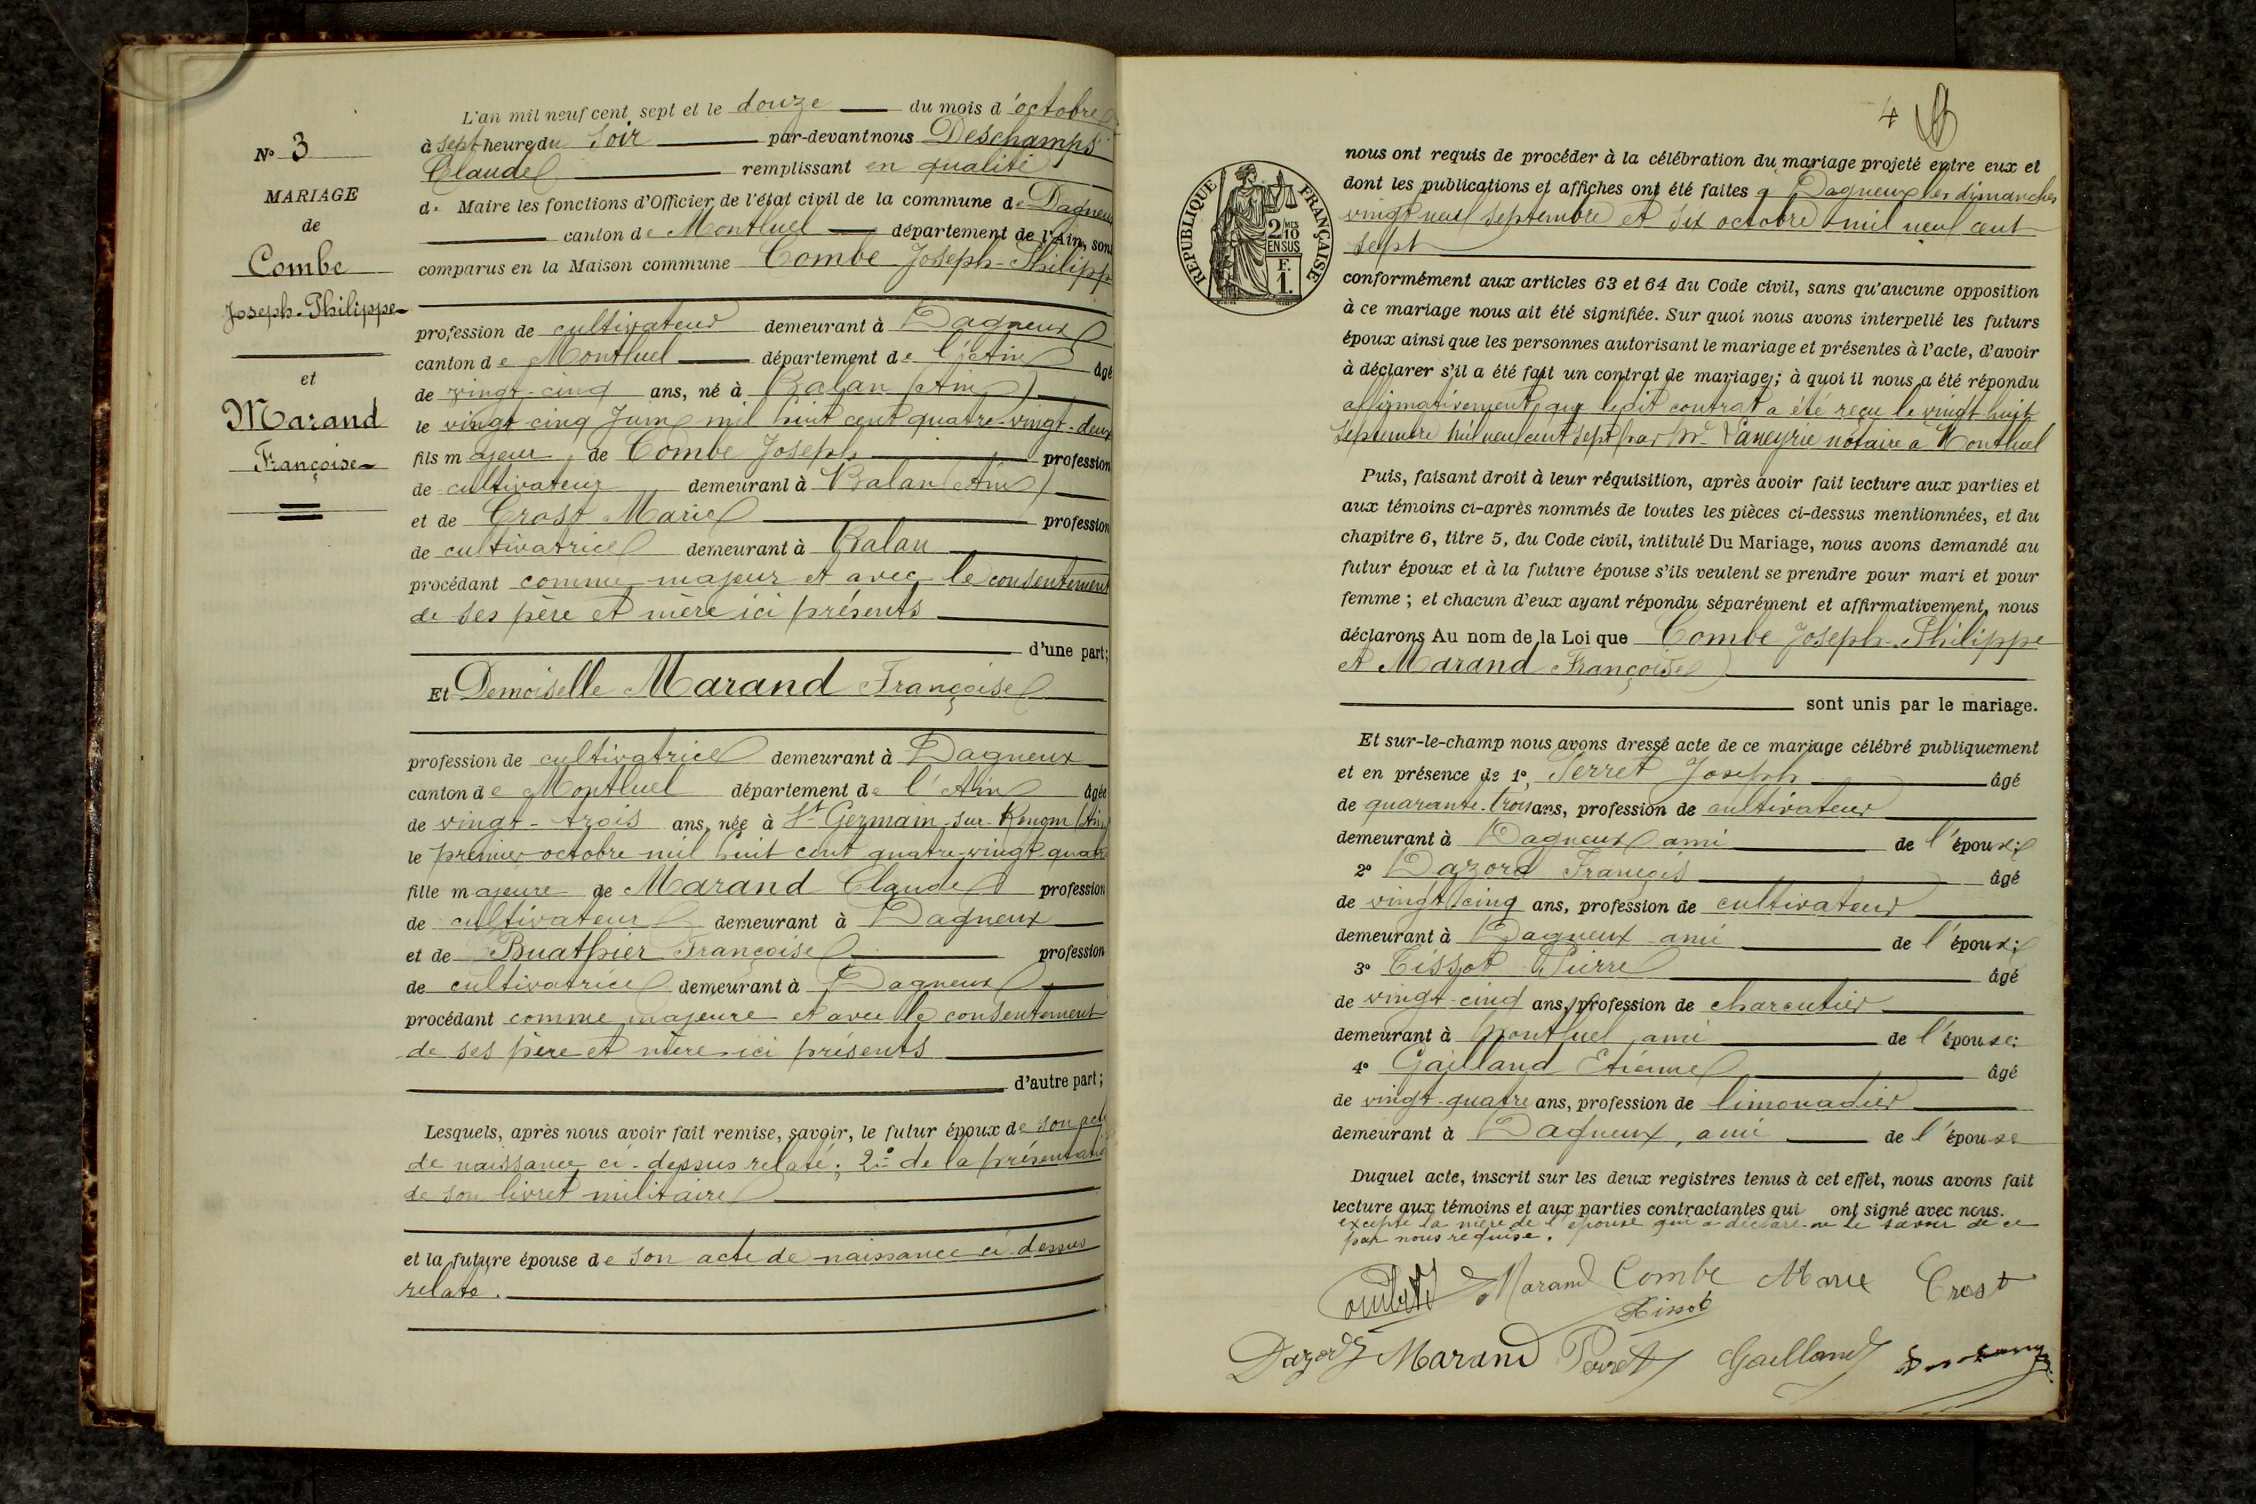 N° 3
MARIAGE
de
Combe
Joseph-Philippe
et
Marand
Françoise
L'an mil neuf cent sept et le douze du mois d'octobre
à sept heures du soir par-devant nous Deschamps
Claude remplissant en qualité
de Maire les fonctions d'Officier de l'état civil de la commune de Dagneux
canton de Montluel département de l'Ain, sont
comparus en la Maison commune Combe Joseph-Philippe
profession de cultivateur demeurant à Dagneux
canton de Montluel département de l'Ain âgé
de vingt-cinq ans, né à Balan (Ain)
le vingt-cinq Juin mil huit cent quatre-vingt-deux
fils majeur de Combe Joseph profession
de cultivateur demeurant à Balan (Ain)
et de Crost Marie profession
de cultivatrice demeurant à Balan
procédant comme majeur et avec le consentement
de ses père et mère ici présents
d'une part;
Et Demoiselle Marand Françoise
profession de cultivatrice demeurant à Dagneux
canton de Montluel département de l'Ain âgée
de vingt-trois ans, née à St Germain-sur-Renom (Ain)
le premier octobre mil huit cent quatre-vingt-quatre
fille majeure de Marand Claude profession
de cultivateur demeurant à Dagneux
et de Buathier Françoise profession
de cultivatrice demeurant à Dagneux
procédant comme majeure et avec le consentement
de ses père et mère ici présents
d'autre part;
Lesquels, après nous avoir fait remise, savoir, le futur époux de son acte
de naissance ci-dessus relaté; 2° de la présentation
de son livret militaire
et la future épouse de son acte de naissance ci-dessus
relaté.
4
RÉPUBLIQUE FRANÇAISE
2 MES
10
EN SUS
F.
1.
nous ont requis de procéder à la célébration du mariage projeté entre eux et
dont les publications et affiches ont été faites à Dagneux les dimanches
vingt neuf septembre et six octobre mil neuf cent
sept
conformément aux articles 63 et 64 du Code civil, sans qu'aucune opposition
à ce mariage nous ait été signifiée. Sur quoi nous avons interpellé les futurs
époux ainsi que les personnes autorisant le mariage et présentes à l'acte, d'avoir
à déclarer s'il a été fait un contrat de mariage; à quoi il nous a été répondu
affirmativement, que ledit contrat a été reçu le vingt-huit
septembre mil neuf cent sept par Me notaire a Montluel
Puis, faisant droit à leur réquisition, après avoir fait lecture aux parties et
aux témoins ci-après nommés de toutes les pièces ci-dessus mentionnées, et du
chapitre 6, titre 5, du Code civil, intitulé Du Mariage, nous avons demandé au
futur époux et à la future épouse s'ils veulent se prendre pour mari et pour
femme; et chacun d'eux ayant répondu séparément et affirmativement, nous
déclarons Au nom de la Loi que Combe Joseph-Philippe
et Marand Françoise
sont unis par le mariage.
Et sur-le-champ nous avons dressé acte de ce mariage célébré publiquement
et en présence de 1°, Perret Joseph âgé
de quarante-trois ans, profession de cultivateur
demeurant à Dagneux ami de l'époux;
2° Dazord François âgé
de vingt cinq ans, profession de cultivateur
demeurant à Dagneux ami de l'époux;
3° Tissot Pierre âgé
de vingt-cinq ans, profession de charcutier
demeurant à Montluel, ami de l'épouse;
4° Gailland Etienne âgé
de vingt-quatre ans, profession de limonadier
demeurant à Dagneux, ami de l'épouse
Duquel acte, inscrit sur les deux registres tenus à cet effet, nous avons fait
lecture aux témoins et aux parties contractantes qui ont signé avec nous.
excepté la mère de l'épouse qui a déclaré ne le savoir de ce
par nous requise.
Marand Combe Marie Crost
Tissot
Dazord Marand Perret Gailland